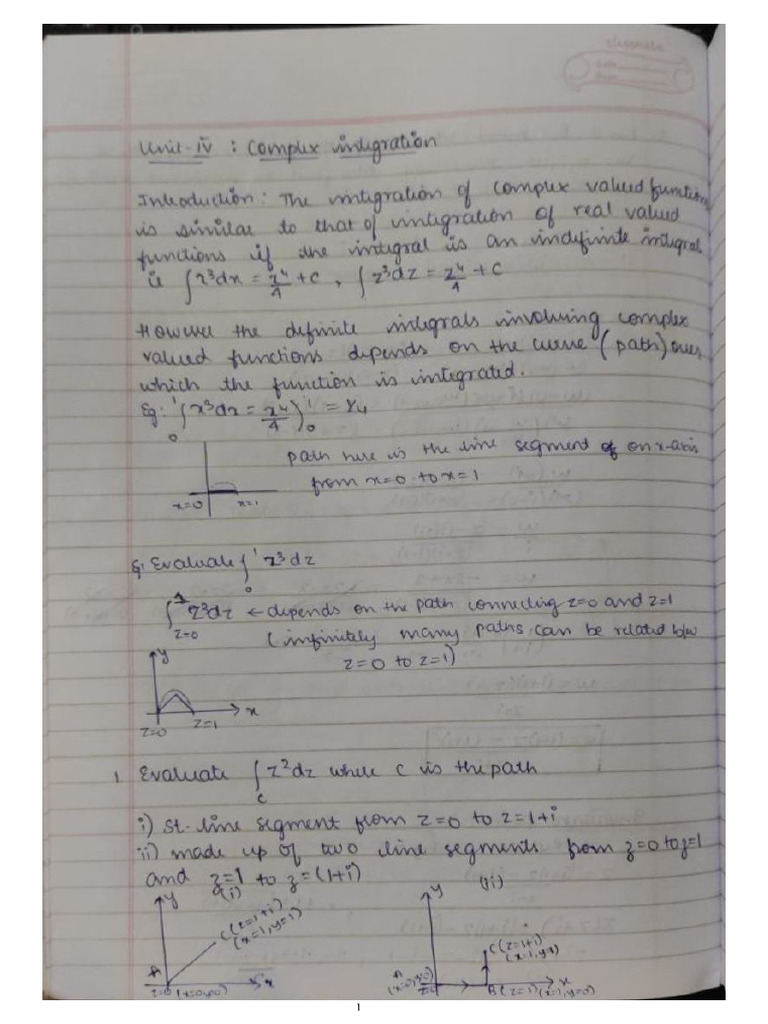 classmate
Date
Page
Unit-iv : Complex integration
Introduction: The integration of complex valued function
is similar to that of integration of real valued
functions if the integral is an indefinite integral
ie ∫x³dx = x⁴/4 + c , ∫z³dz = z⁴/4 + c
However the definite integrals involving complex
valued functions depends on the curve (path) over
which the function is integrated.
Eg: ₀∫¹ x³dx = x⁴/4 )₀¹ = 1/4
path here is the line segment of on x-axis
from x=0 to x=1
x=0 x=1
Q: Evaluate ∫₀¹ z³dz
∫_{z=0}^1 z³dz ← depends on the path connecting z=0 and z=1
(infinitely many paths can be related b/w
z=0 to z=1)
y
x
z=0 z=1
1. Evaluate ∫_C z²dz where C is the path
i) st. line segment from z=0 to z=1+i
ii) made up of two line segments from z=0 to z=1
and z=1 to z=(1+i)
(i) (ii)
y y
C(z=1+i) C(z=1+i)
(x=1,y=1) (x=1,y=1)
A A
z=0 (x=0,y=0) x (x=0,y=0) z=0 B(z=1)(x=1,y=0) x
1